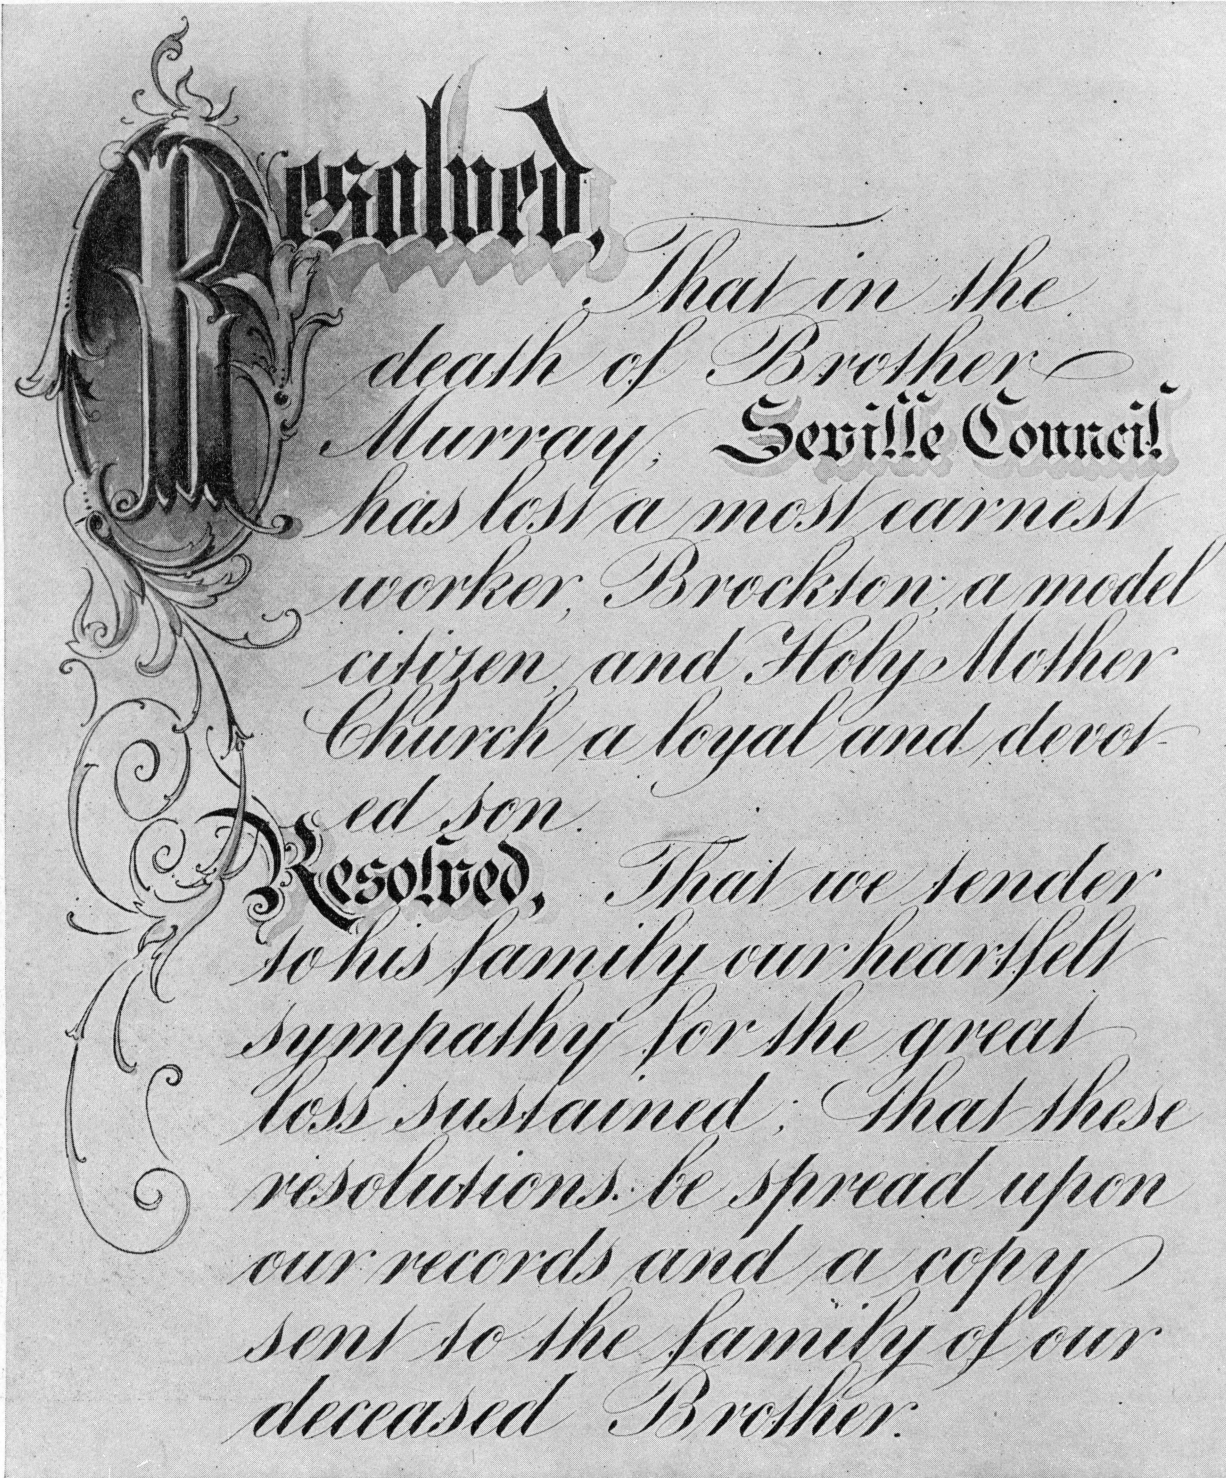 Resolved,
That in the
death of Brother
Murray, Seville Council
has lost a most earnest
worker, Brockton, a model
citizen, and Holy Mother
Church a loyal and devot-
ed son.
Resolved, That we tender
to his family our heartfelt
sympathy for the great
loss sustained; that these
resolutions be spread upon
our records and a copy
sent to the family of our
deceased Brother.